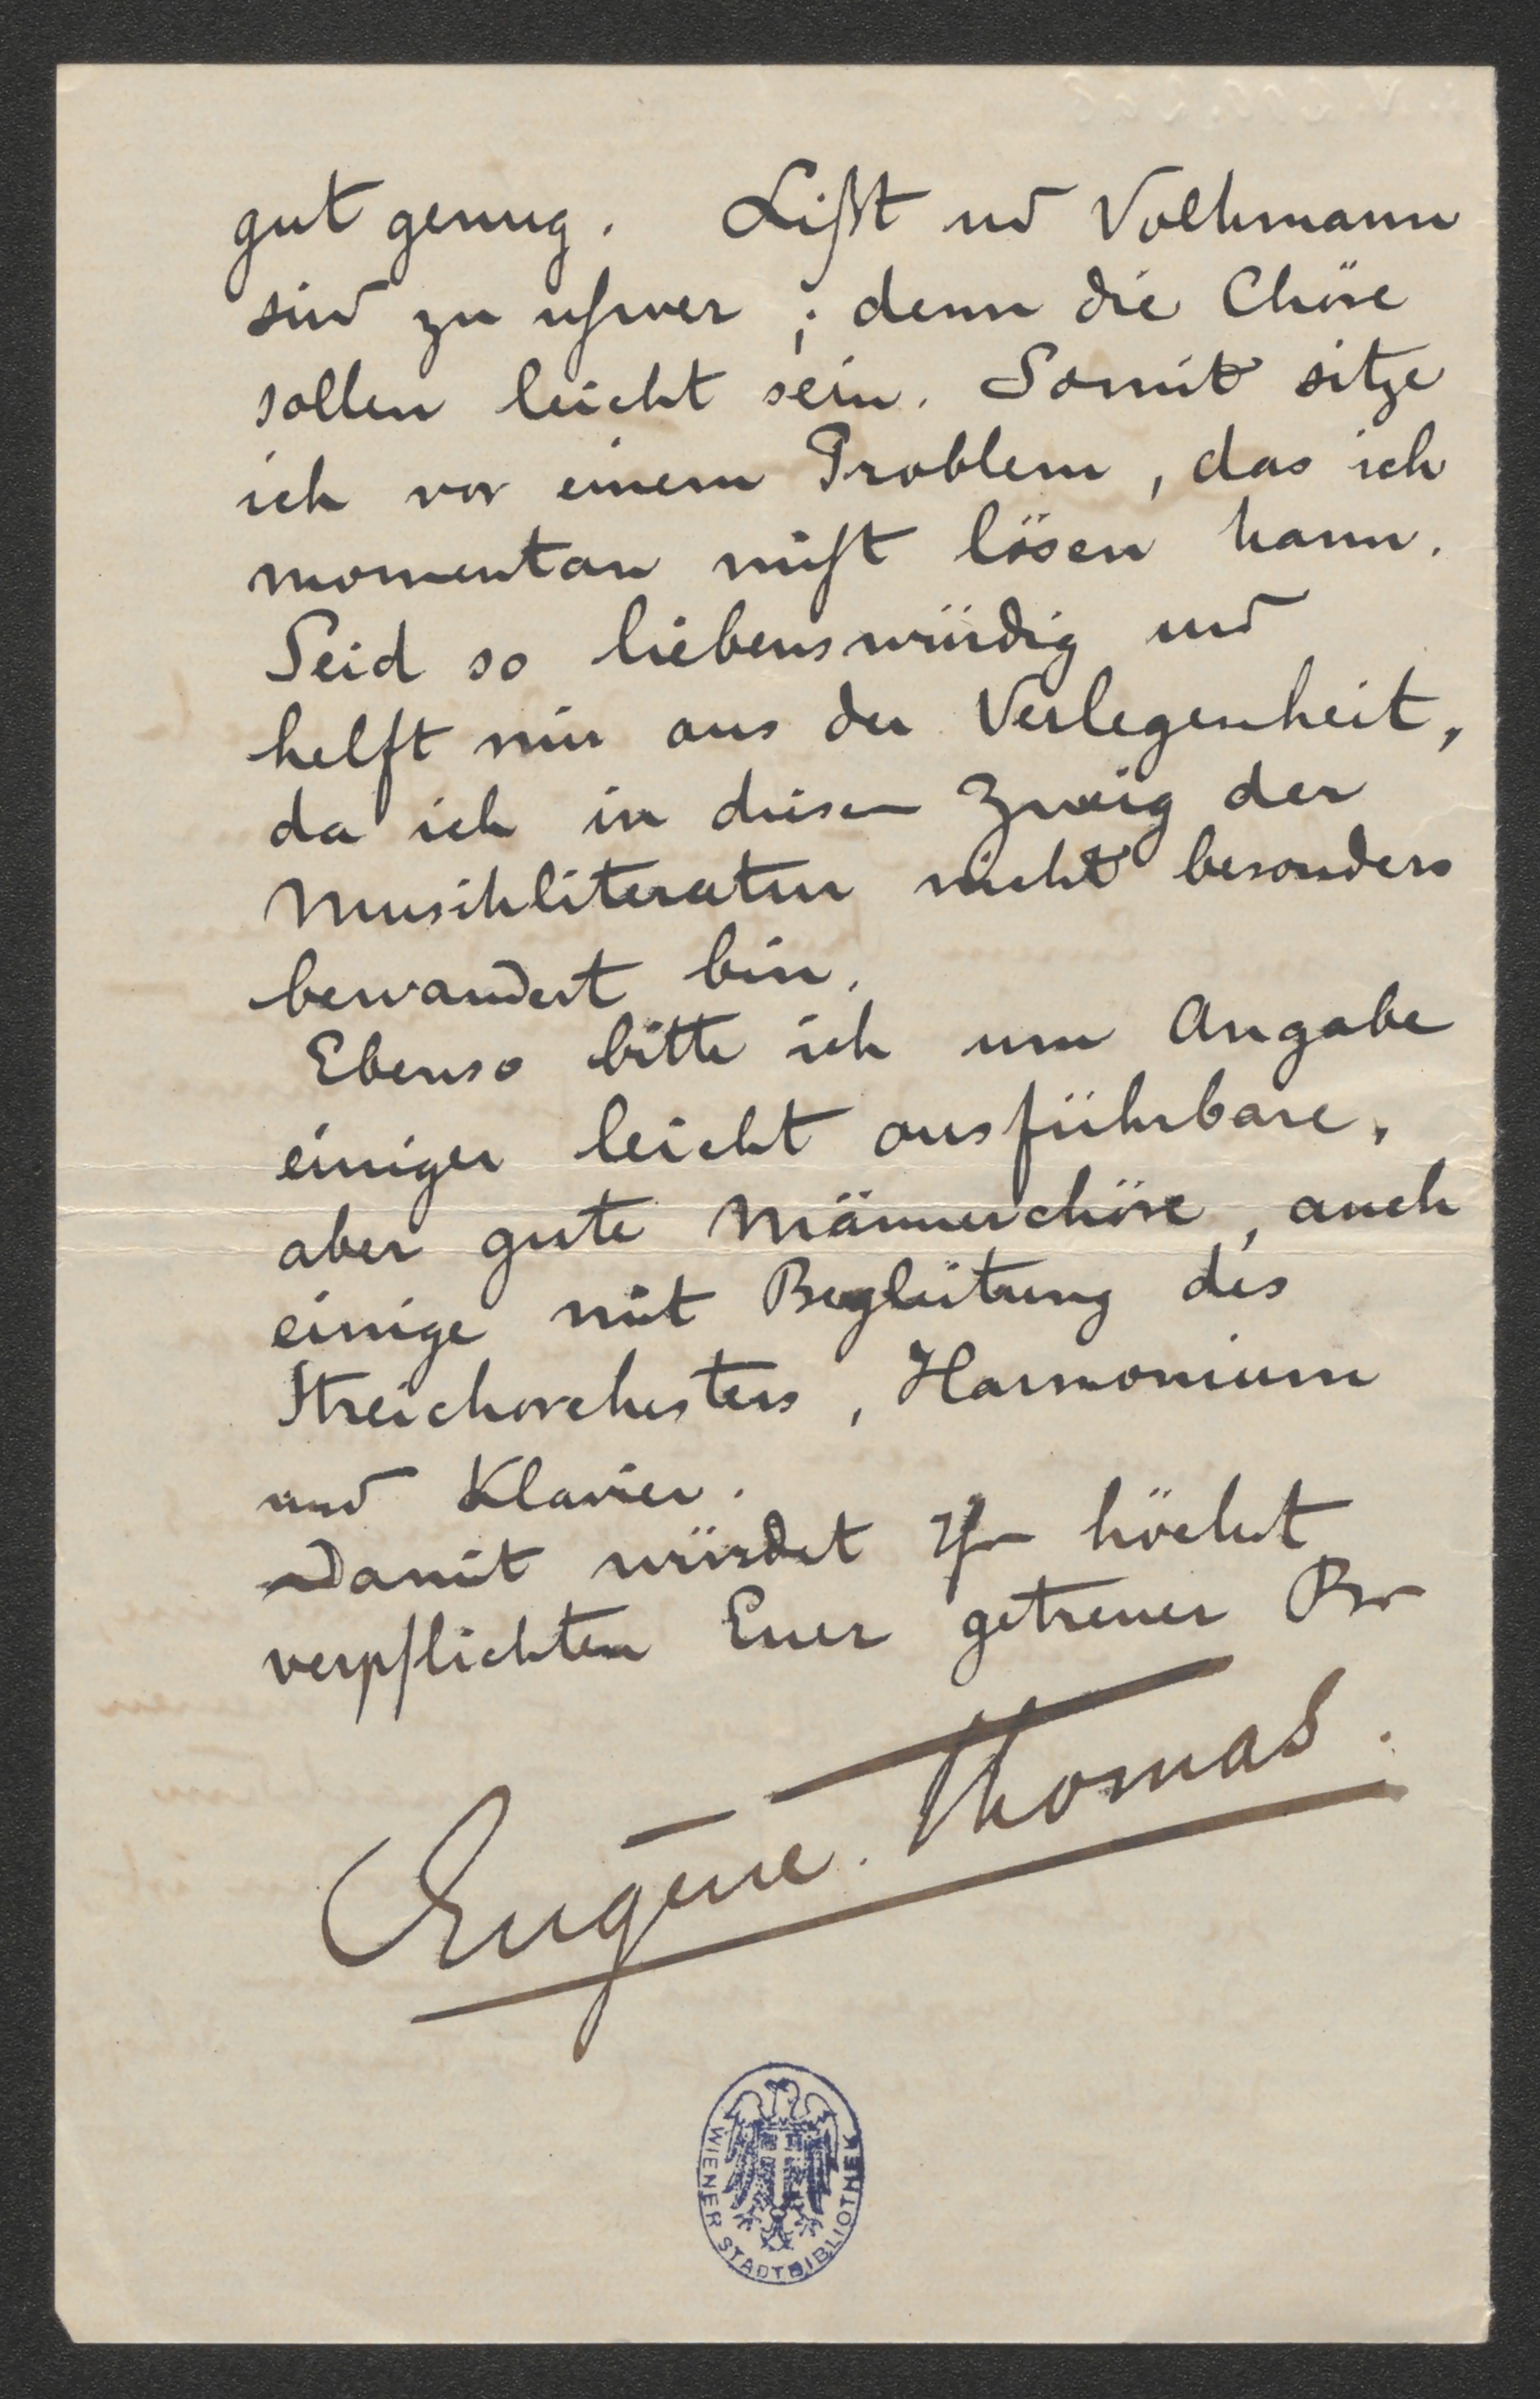 gut genug. Lißt und Volkmann
sind zu schwer; denn die Chöre
sollen leicht sein. Somit sitze
ich vor einem Problem, das ich
momentan nicht lösen kann.
Seid so liebenswürdig und
helft mir aus der Verlegenheit,
da ich in diesem Zweig der
Musikliteratur nicht besonders
bewandert bin.
Ebenso bitte ich um Angabe
einiger leicht ausführbare,
aber gute Männerchöre, auch
einige mit Begleitung des
Streichorchesters, Harmonium
und Klavier.
Damit würdet Ihr höchst
verpflichten Euer getreuer Br
Eugène. Thomas.
WIENER STADTBIBLIOTHEK